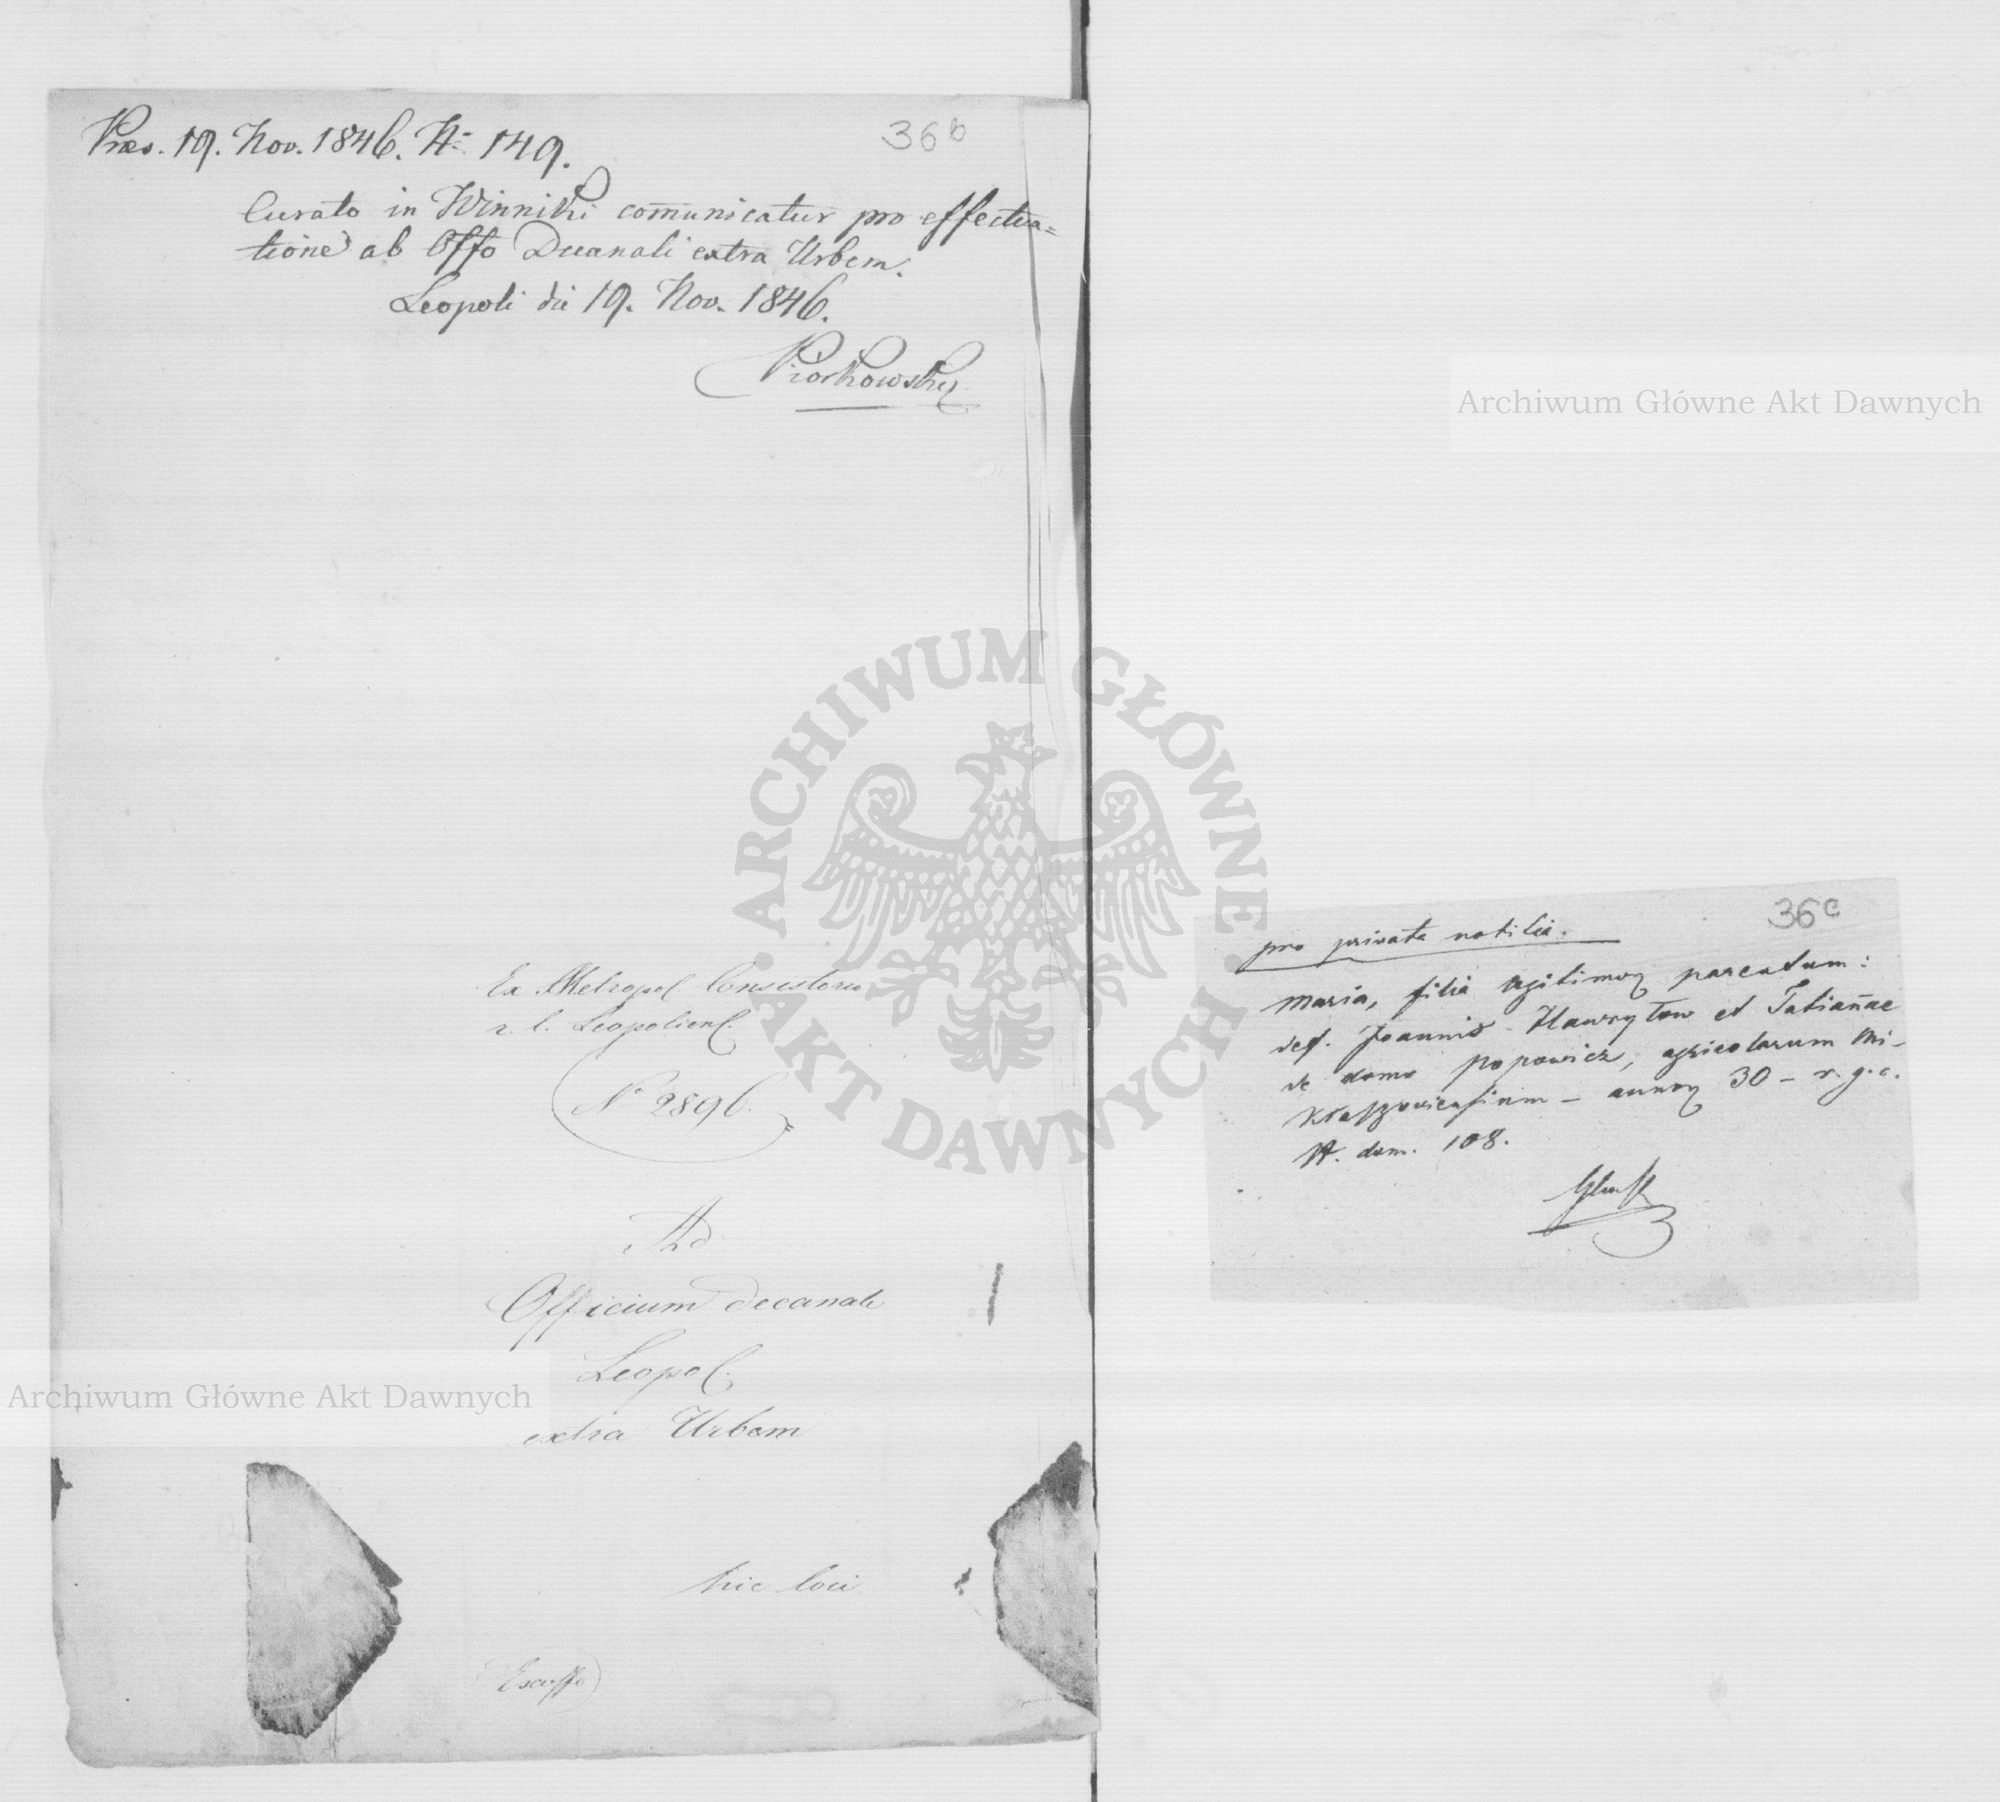 36 b
Præs. 19. Nov. 1846. N: 149.
Curato in Winniki comunicatur pro effectua=
tione ab Offo Decanali extra Urbem.
Leopoli die 19. Nov. 1846.
Piorkowsky
Ex Metropol Consistorio
r. l. Leopoliens.
N 2896.
Ad
Officium decanale
Leopol.
extra Urbem
hic loci
Exoffo
36 c
pro privata notitia.
Maria, filia legitimor parentum:
def. Joannis Hawryłow et Tatiannae
de domo Popowicz, agricolarum Mi-
kłaszoviensium – annor 30 – r. g. c.
N. dom. 108.
Archiwum Główne Akt Dawnych
Archiwum Główne Akt Dawnych
ARCHIWUM GŁÓWNE AKT DAWNYCH